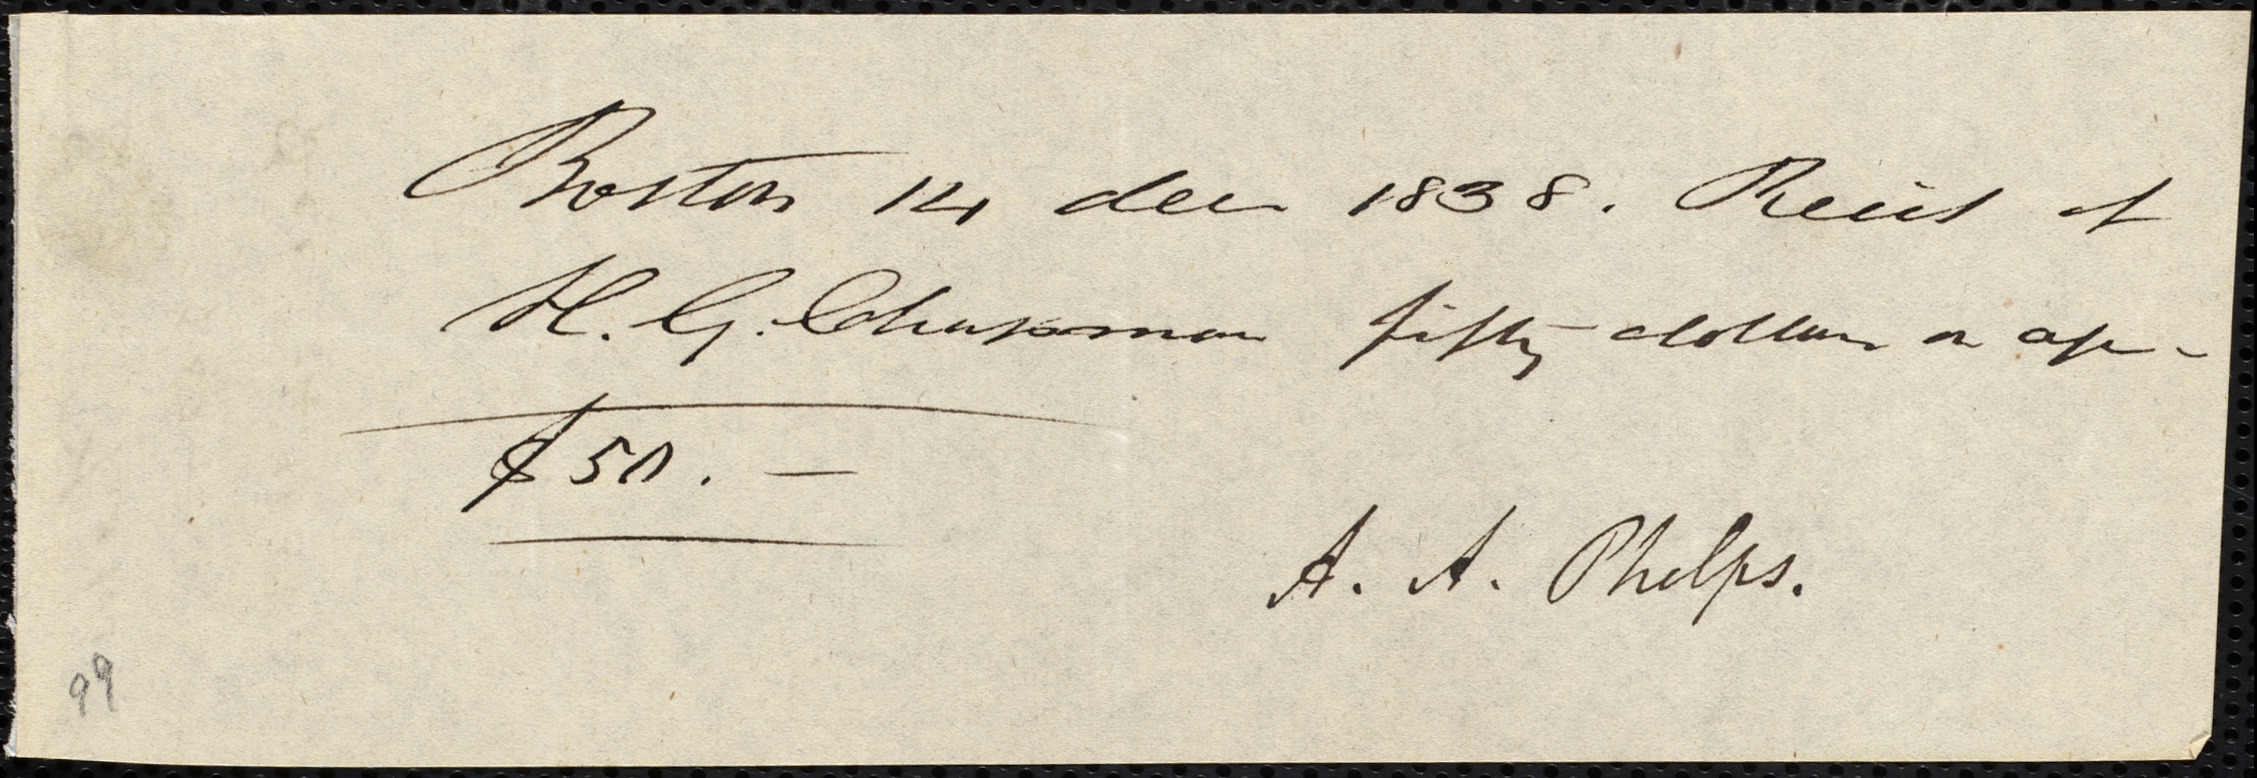 Boston 14 dec 1838. Recd of
H. G. Chapman fifty dollars on ap-
$50. —
A. A. Phelps.
99